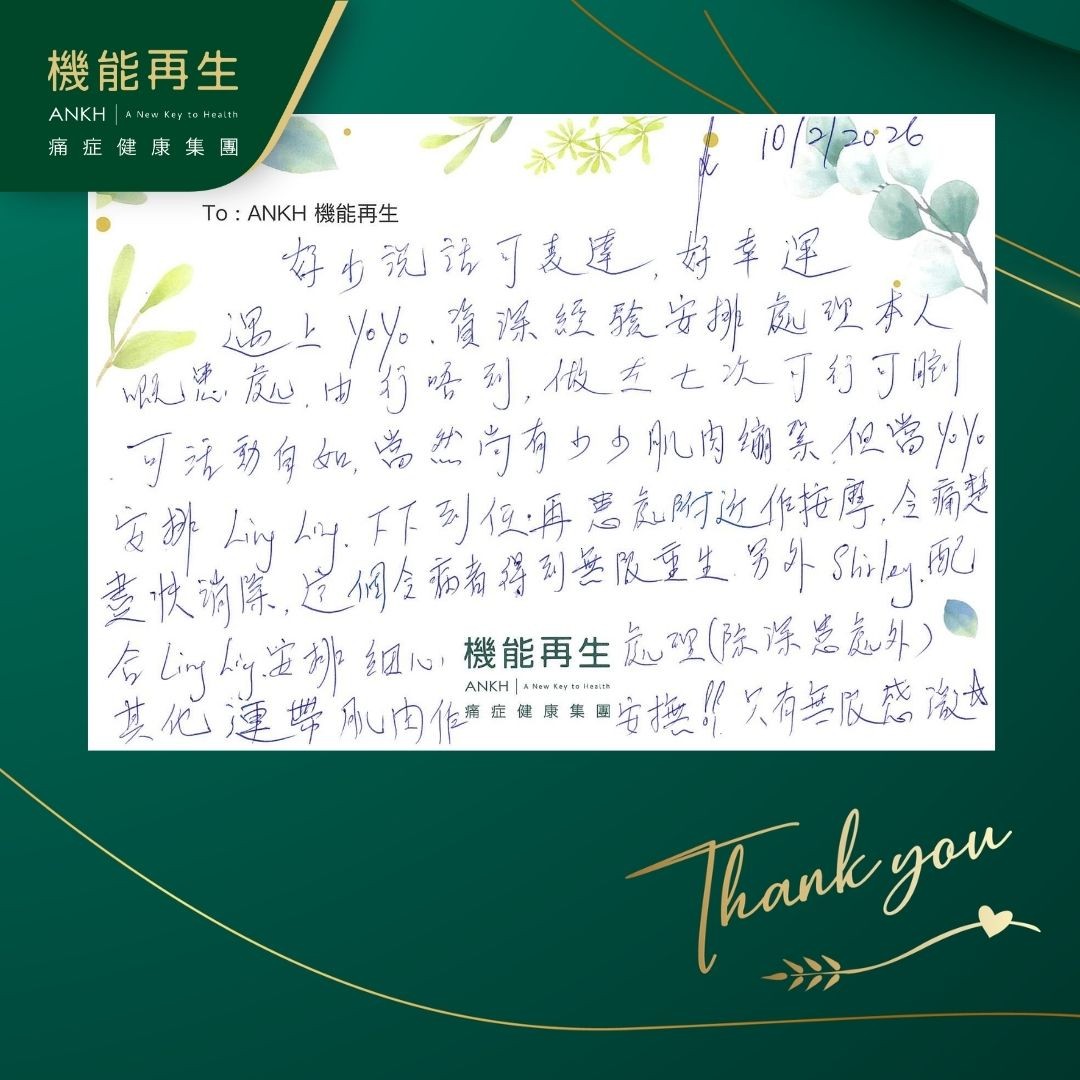 機能再生
ANKH | A New Key to Health
痛症健康集團
10/2/2026
To : ANKH 機能再生
好少說話可表達,好幸運
遇上YoYo.資深經驗安排處理本人
嘅患處,由行唔到,做左七次可行可蹲
可活動自如,當然尚有少少肌肉繃緊,但當YoYo
安排Ling Ling,下下到位,再患處附近作按摩,令痛楚
盡快消除,這個令病者得到無限重生.另外Shirley,配
合Ling Ling,安排細心處理(除深患處外)
其他連帶肌肉作安撫!!只有無限感激
機能再生
ANKH | A New Key to Health
痛症健康集團
Thank you